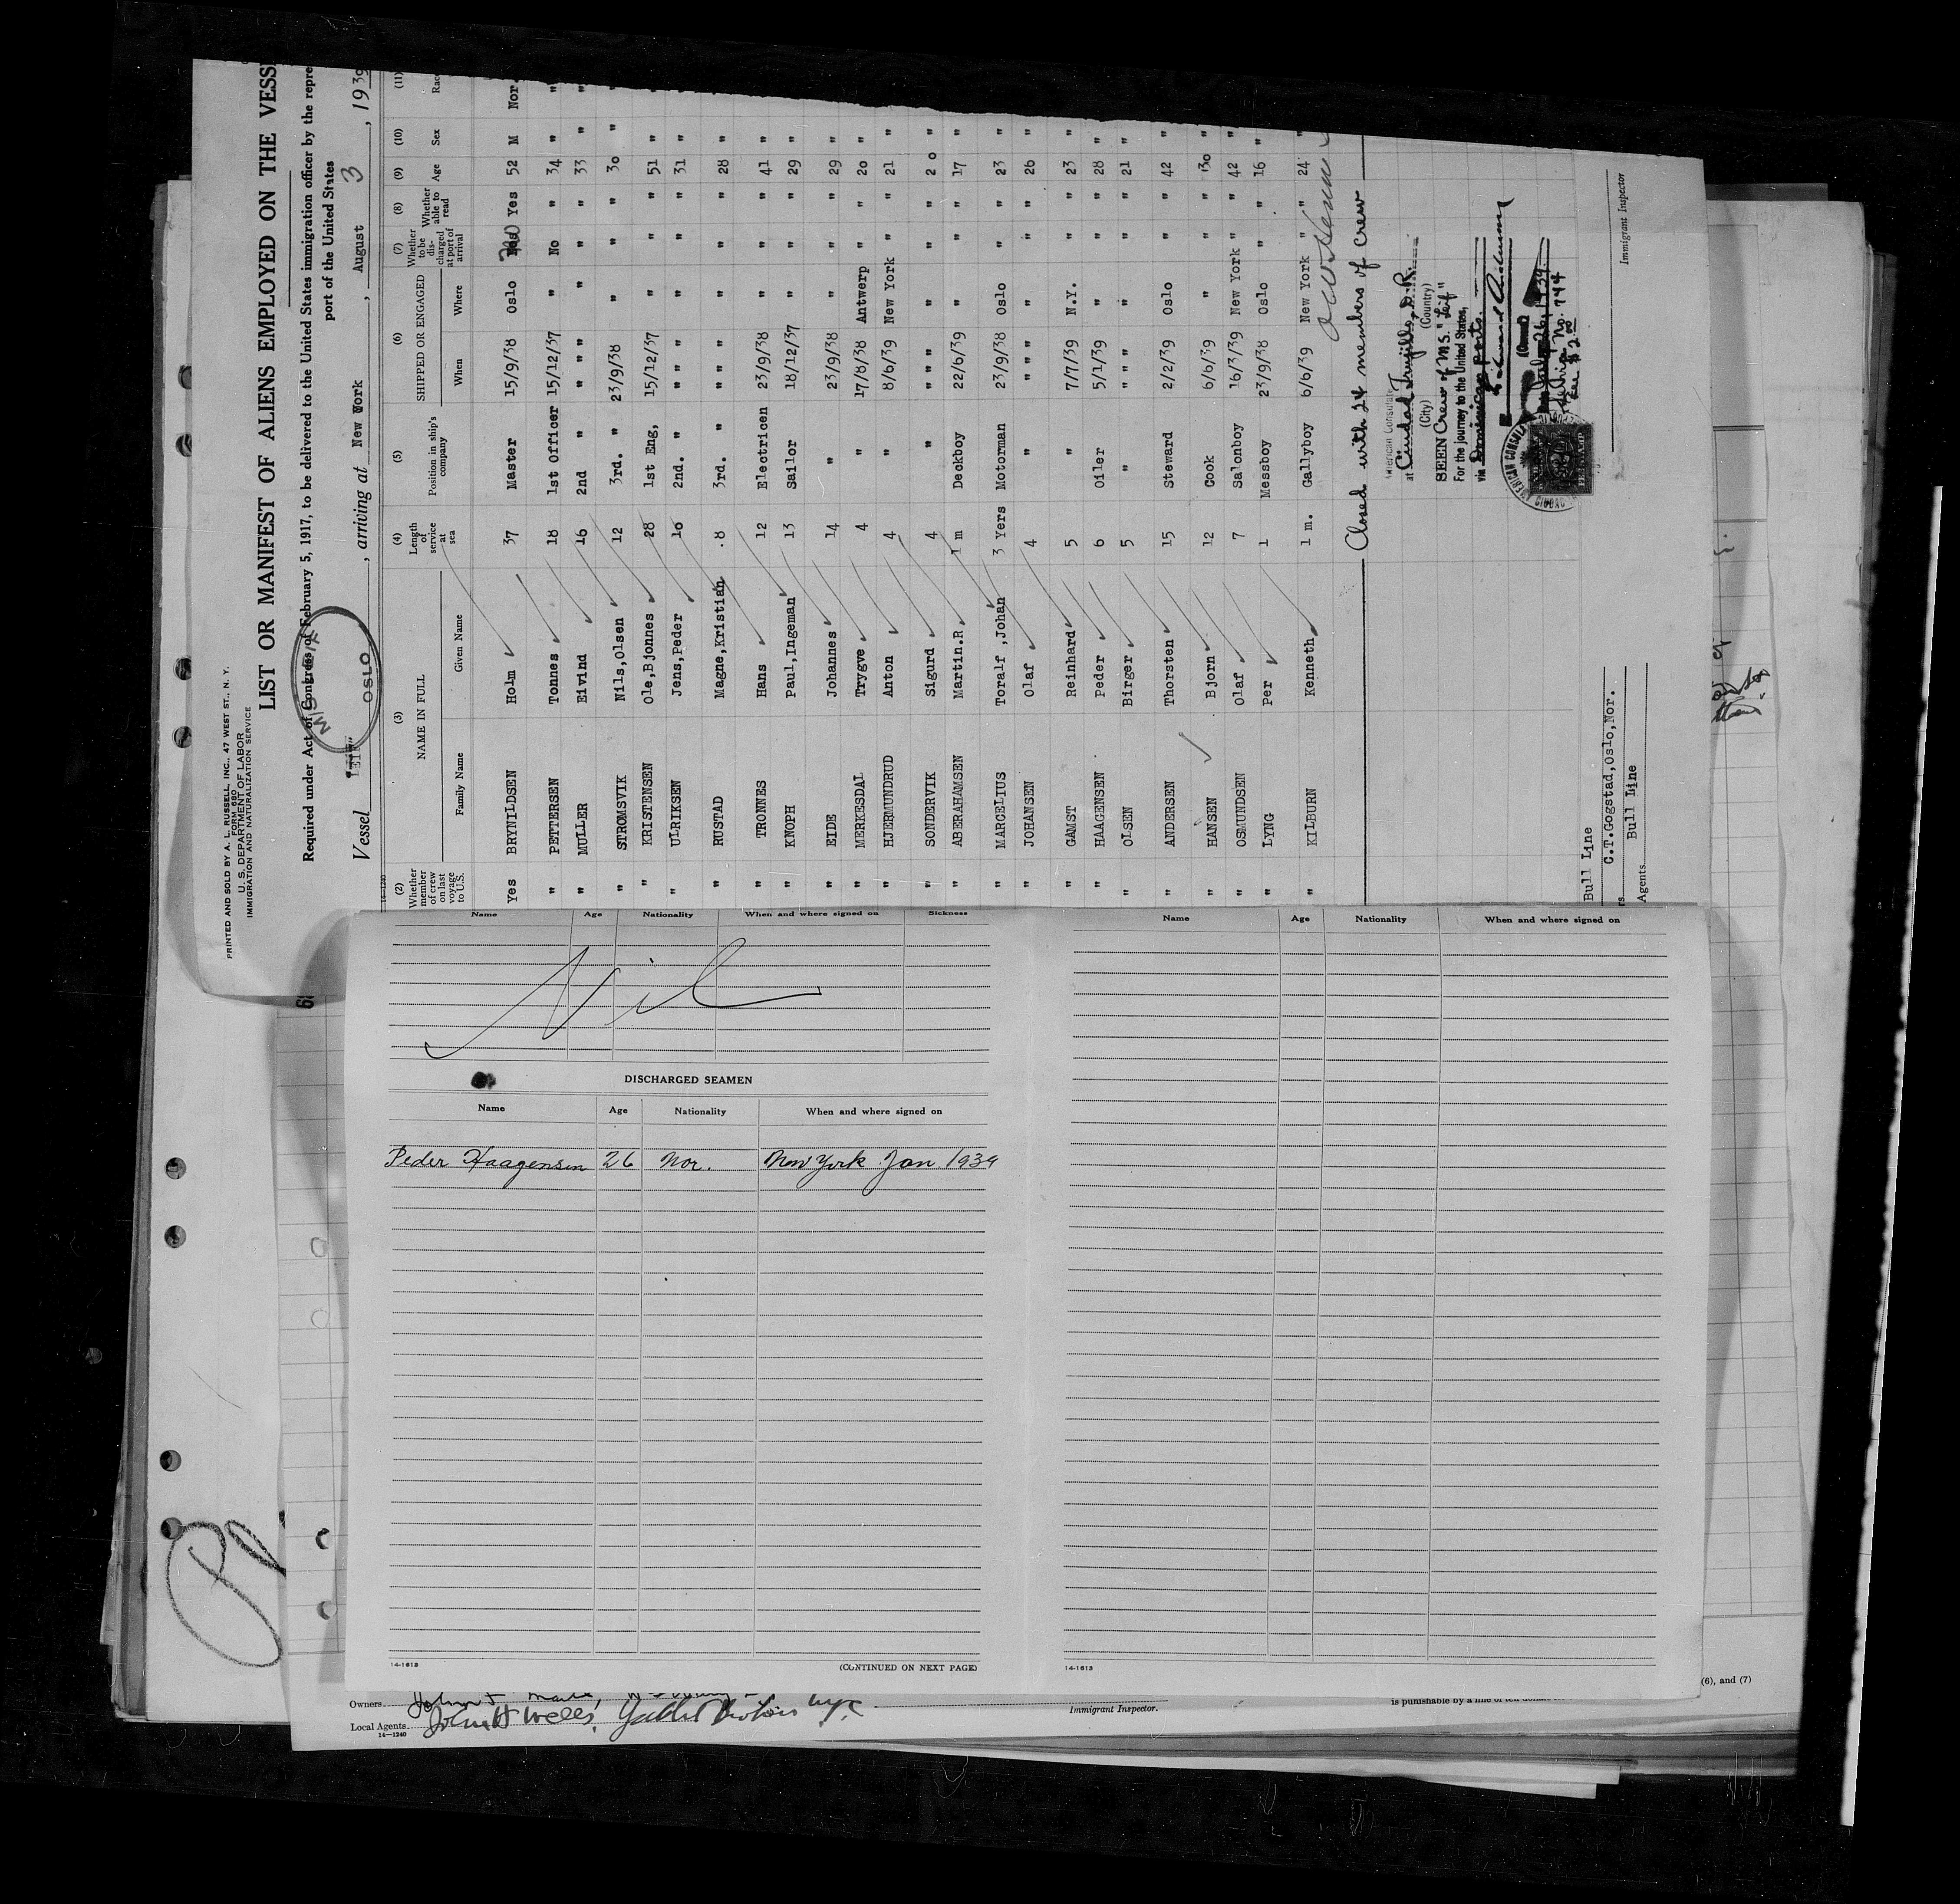 PRINTED AND SOLD BY A. L. RUSSELL, INC., 47 WEST ST., N. Y.
FORM 680
U. S. DEPARTMENT OF LABOR
IMMIGRATION AND NATURALIZATION SERVICE
LIST OR MANIFEST OF ALIENS EMPLOYED ON THE VESS
Required under Act of Congress of February 5, 1917, to be delivered to the United States immigration officer by the repre
port of the United States
M/S LEIF
OSLO
Vessel LEIF, arriving at New York, August 3, 1939
14-1240
(2) (3) (4) (5) (6) (7) (8) (9) (10) (11)
Whether member of crew on last voyage to U.S. NAME IN FULL Length of service at sea Position in ship's company SHIPPED OR ENGAGED Whether to be discharged at port of arrival Whether able to read Age Sex Rac
Family Name Given Name When Where
Yes BRYNILDSEN Holm 37 Master 15/9/38 Oslo No Yes 52 M Nor.
" PETTERSEN Tonnes 18 1st Officer 15/12/37 " No " 34 " "
" MULLER Eivind 16 2nd " " " " " " " 33 " "
" STROMSVIK Nils,Olsen 12 3rd. " 23/9/38 " " " 30 " "
" KRISTENSEN Ole,Bjonnes 28 1st Eng, 15/12/37 " " " 51 " "
" ULRIKSEN Jens,Peder 10 2nd. " " " " " " " 31 " "
" RUSTAD Magne,Kristian 8 3rd. " " " " " " " 28 " "
" TRONNES Hans 12 Electricen 23/9/38 " " " 41 " "
" KNOPH Paul,Ingeman 13 Sailor 18/12/37 " " " 29 " "
" EIDE Johannes 14 " 23/9/38 " " " 29 " "
" MERKESDAL Trygve 4 " 17/8/38 Antwerp " " 20 " "
" HJERMUNDRUD Anton 4 " 8/6/39 New York " " 21 "
" SONDERVIK Sigurd 4 " " " " " " " 20 "
" ABERAHAMSEN Martin.R 1 m Deckboy 22/6/39 " " " 17 "
" MARCELIUS Toralf ,Johan 3 Yers Motorman 23/9/38 Oslo " " 23 "
" JOHANSEN Olaf 4 " " " " " " " 26 "
" GAMST Reinhard 5 " 7/7/39 N.Y. " " 23 "
" HAAGENSEN Peder 6 Oiler 5/1/39 " " " 28 "
" OLSEN Birger 5 " " " " " " " 21 "
" ANDERSEN Thorsten 15 Steward 2/2/39 Oslo " " 42 "
" HANSEN Bjorn 12 Cook 6/6/39 " " " 30 "
" OSMUNDSEN Olaf 7 Salonboy 16/3/39 New York " " 42 "
" LYNG Per 1 Messboy 23/9/38 Oslo " " 16 "
" KILBURN Kenneth 1 m. Gallyboy 6/6/39 New York " " 24 "
Closed with 24 members of crew
American Consulate
at Ciudad Trujillo, D.R.
(City) (Country)
SEEN Crew of M.S. "Leif"
For the journey to the United States,
via Dominican ports.
July 26, 1939.
No. 744
Fee $2.00
AMERICAN CONSULA
Immigrant Inspector
Bull Line
C.T.Gogstad,Oslo,Nor.
Agents Bull Line
Name Age Nationality When and where signed on Sickness
Nil
DISCHARGED SEAMEN
Name Age Nationality When and where signed on
Peder Haagensen 26 Nor. New York Jan 1939
14-1613
(CONTINUED ON NEXT PAGE)
Name Age Nationality When and where signed on
14-1613
Owners
Local Agents John H Wells,
14-1240
Immigrant Inspector.
(6), and (7)